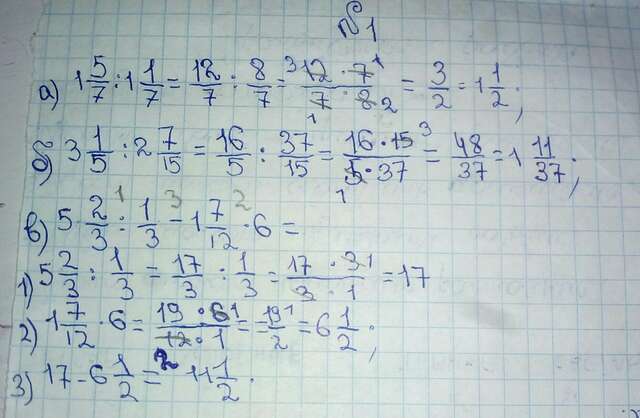 №1
а) 1 5/7 : 1 1/7 = 12/7 : 8/7 = 12 · 7 / 7 · 8 = 3/2 = 1 1/2 ;
б) 3 1/5 : 2 7/15 = 16/5 : 37/15 = 16 · 15 / 5 · 37 = 48/37 = 1 11/37 ;
в) 5 2/3 : 1/3 - 1 7/12 · 6 =
1) 5 2/3 : 1/3 = 17/3 : 1/3 = 17 · 3 / 3 · 1 = 17
2) 1 7/12 · 6 = 19 · 6 / 12 · 1 = 19/2 = 6 1/2 ;
3) 17 - 6 1/2 = 11 1/2 .